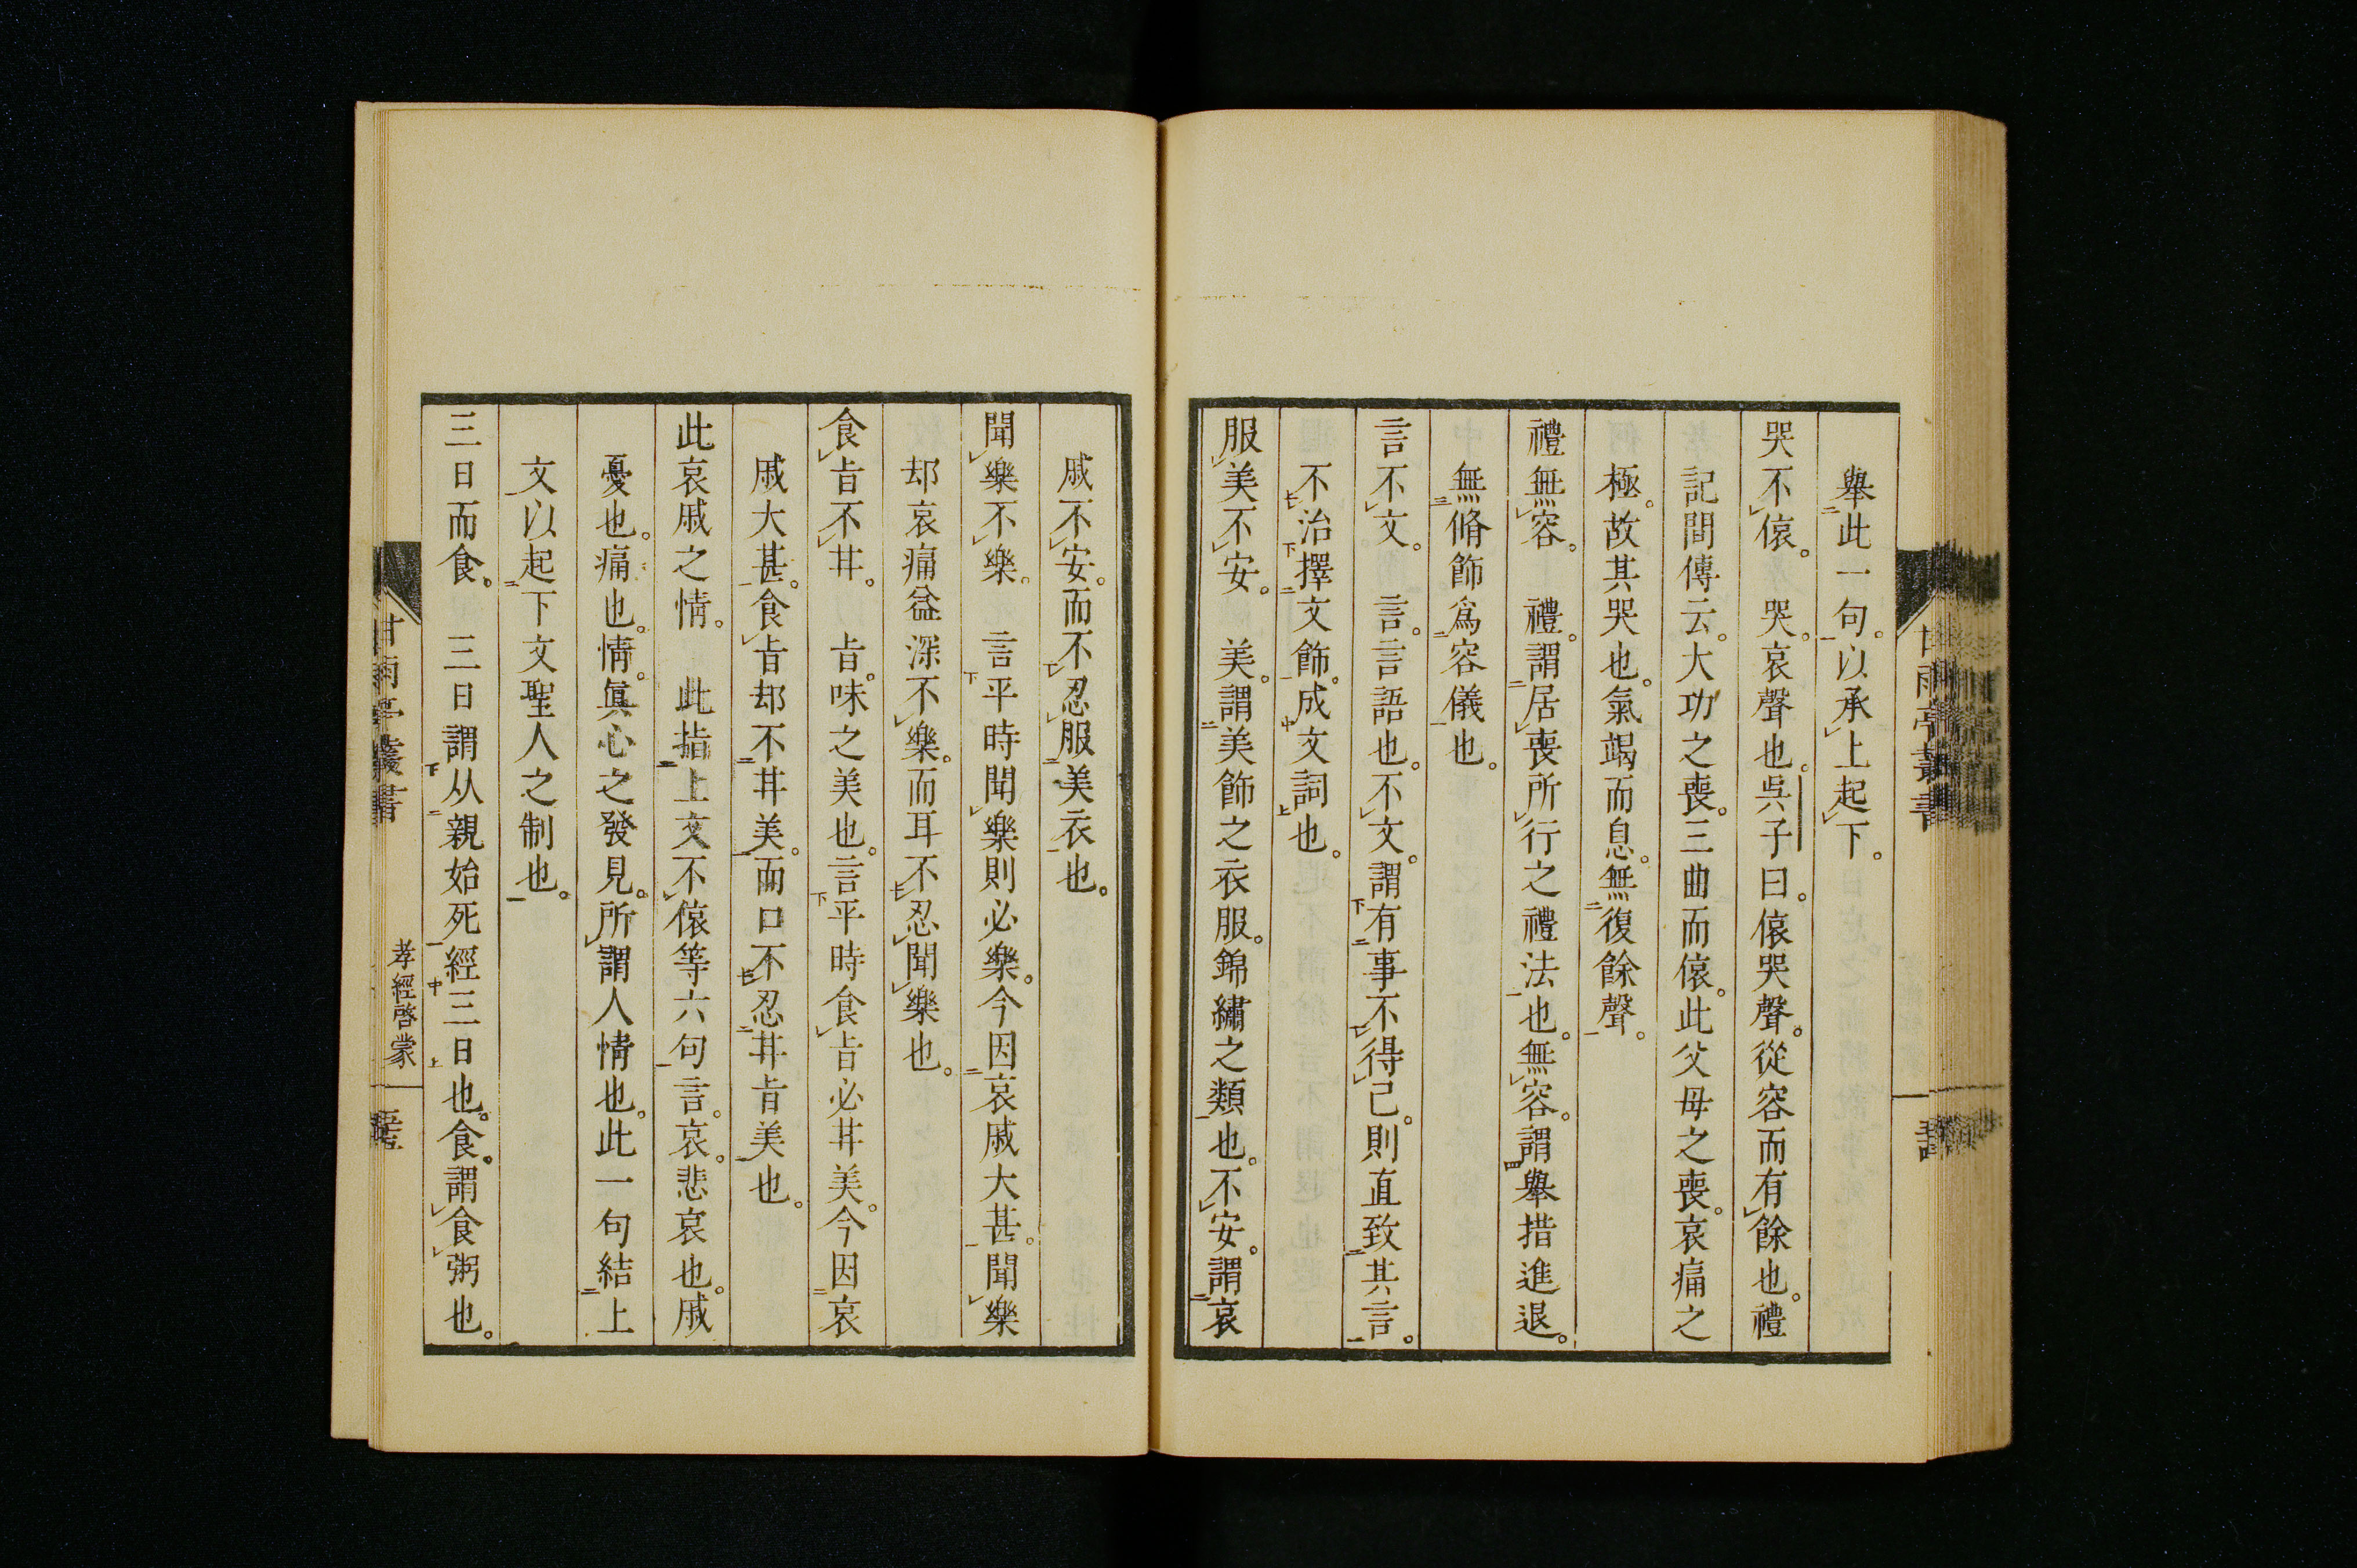 舉此一句。以承上起下。
哭不偯。　哭。哀聲也。吳子曰。偯哭聲。從容而有餘也。禮
記間傳云。大功之喪。三曲而偯。此父母之喪。哀痛之
極。故其哭也。氣竭而息。無復餘聲。
禮無容。　禮。謂居喪所行之禮法也。無容。謂舉措進退。
無脩飾爲容儀也。
言不文。　言。言語也。不文。謂有事不得已。則直致其言。
不治擇文飾。成文詞也。
服美不安。　美。謂美飾之衣服。錦繡之類也。不安。謂哀
甘雨亭叢書
戚不安。而不忍服美衣也。
聞樂不樂。　言平時聞樂則必樂。今因哀戚大甚。聞樂
却哀痛益深不樂。而耳不忍聞樂也。
食旨不甘。　旨。味之美也。言平時食旨必甘美。今因哀
戚大甚。食旨却不甘美。而口不忍甘旨美也。
此哀戚之情。　此指上文不偯等六句言。哀。悲哀也。戚
憂也。痛也。情。眞心之發見。所謂人情也。此一句結上
文以起下文聖人之制也。
三日而食。　三日謂从親始死經三日也。食。謂食粥也。
甘雨亭叢書　孝經啓蒙